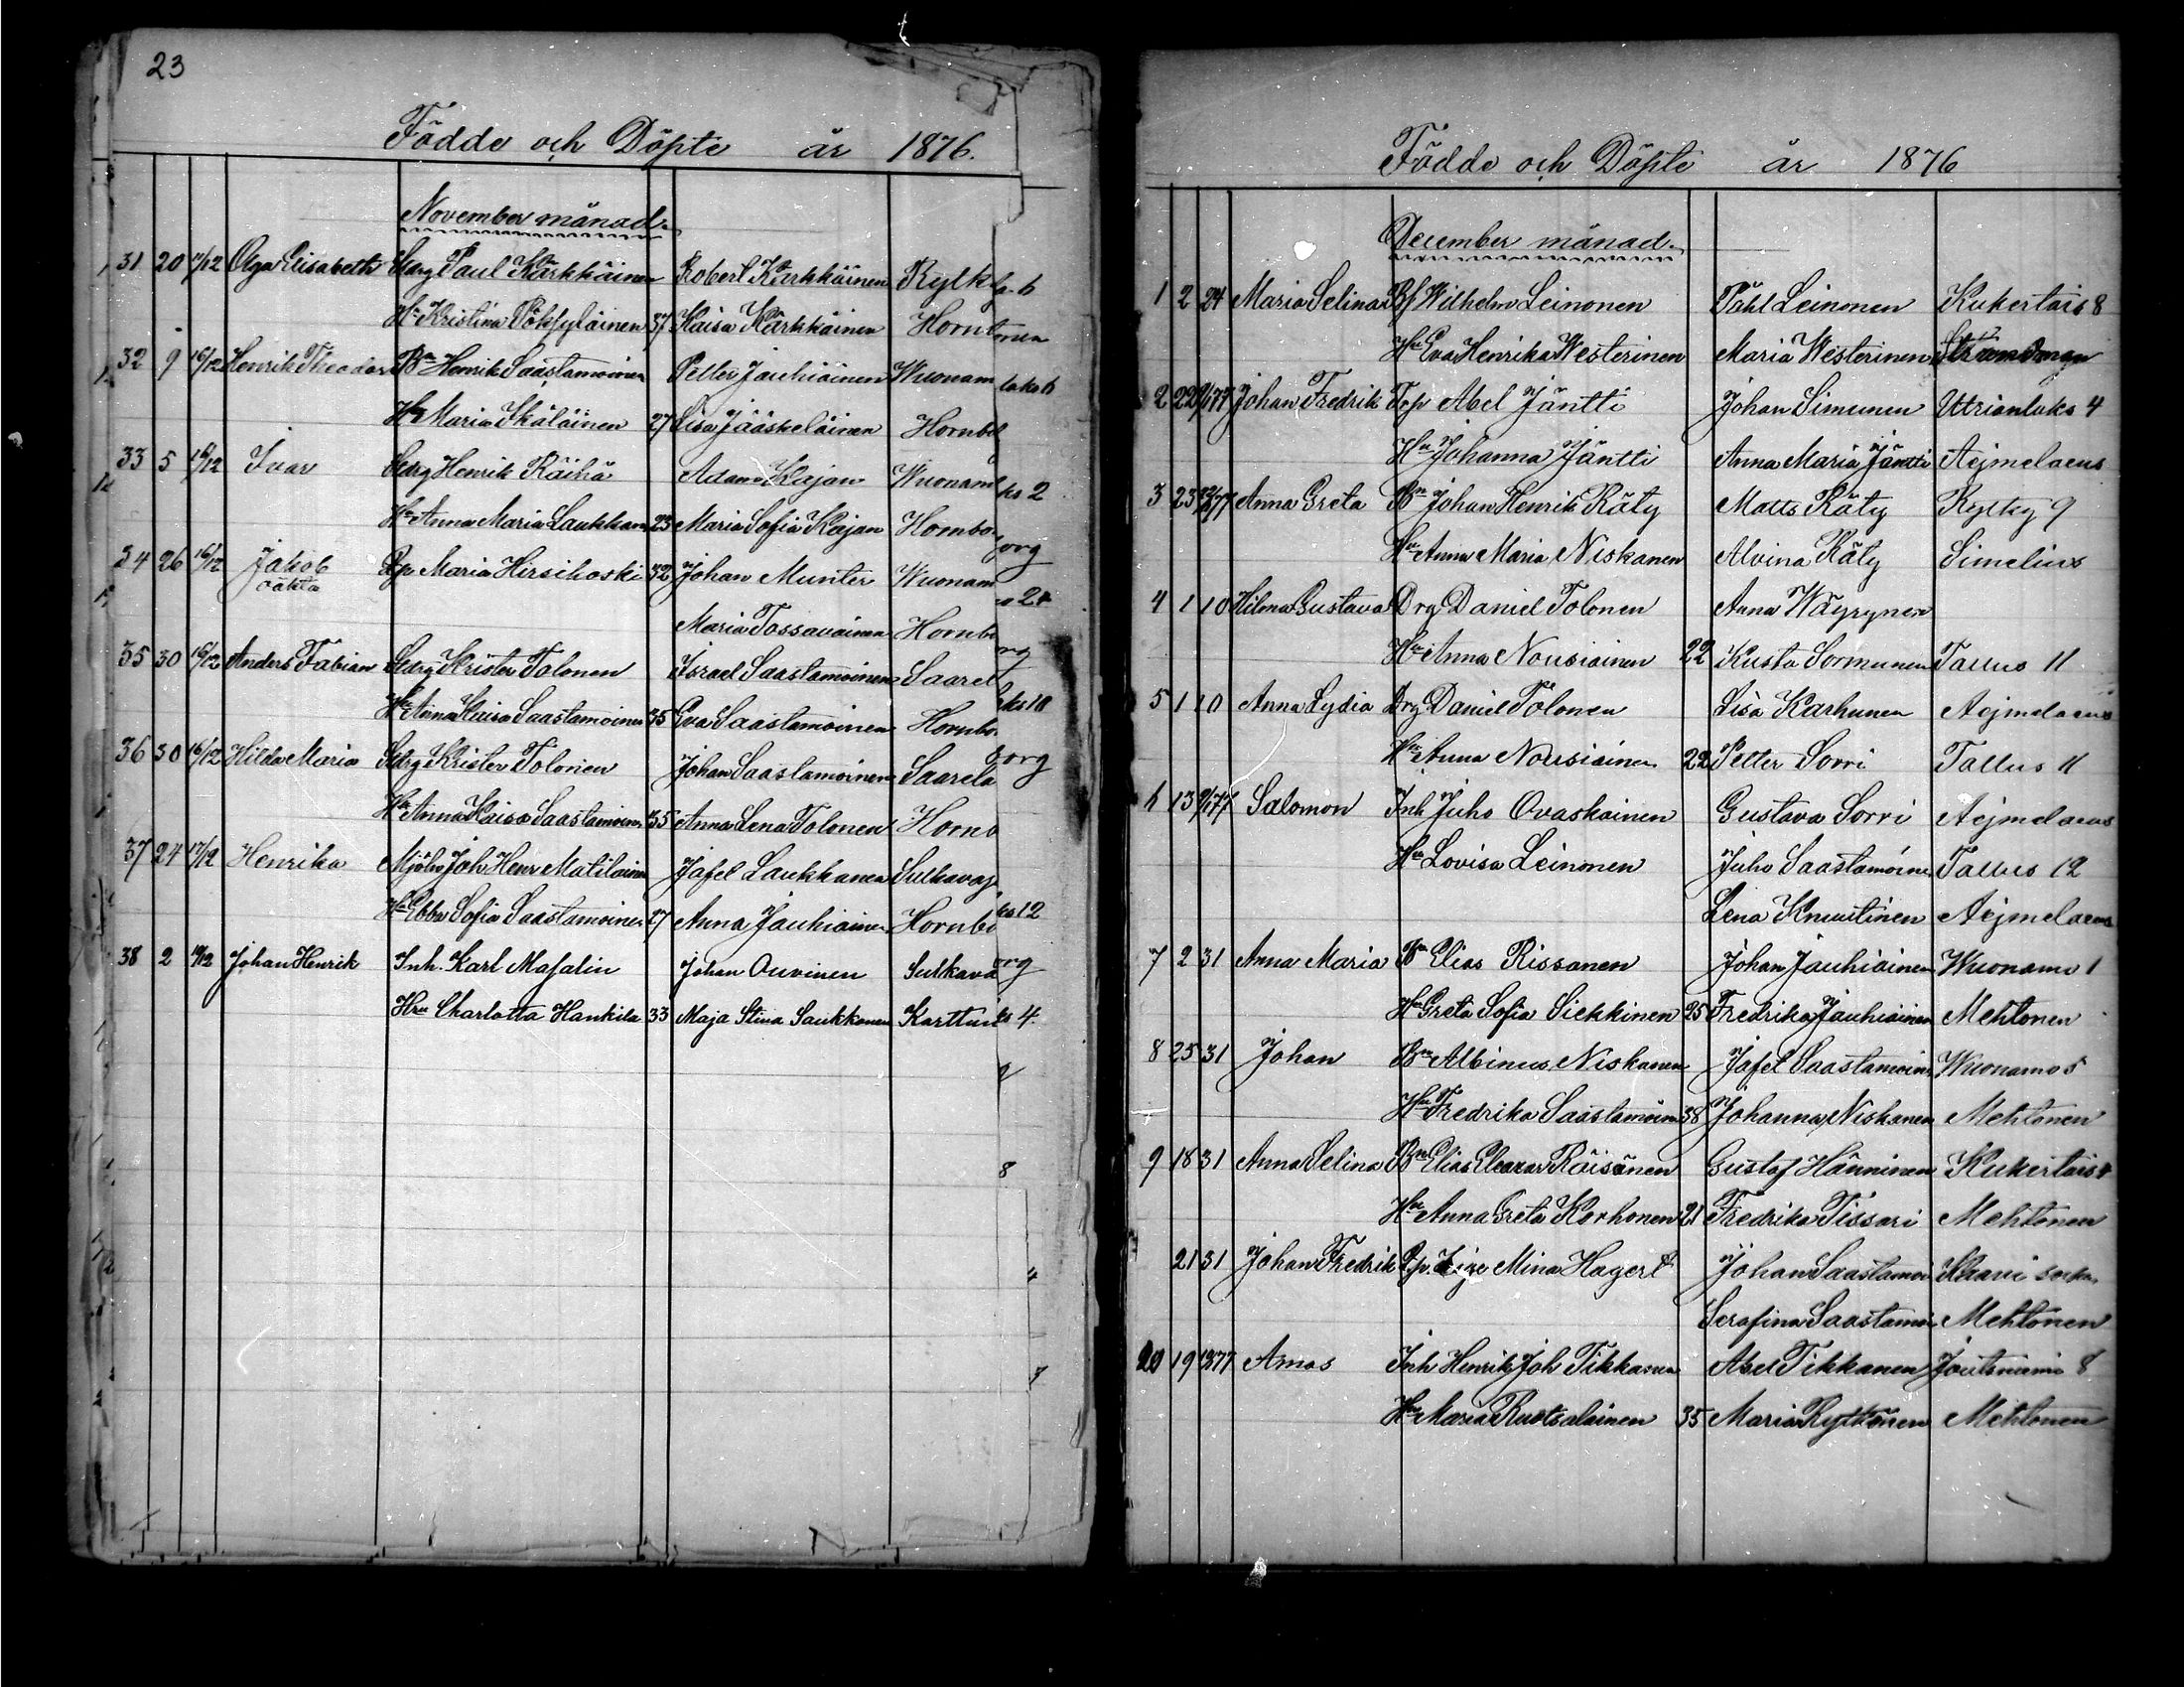 23
Födde och Döpte år 1876.
November månad.
31 20 17/12 Olga Elisabeth Sdrg Paul Kärkkäinen Robert Kärkkäinen Rytk
Hu Kristina Pöksyläinen 37 Kaisa Kärkkäinen Hornb
32 9 16/12 Henrik Theodor Bn Henrik Saastamoinen Petter Jauhiainen Wuonam
Hu Maria Skäläinen 27 Lisa Jääskeläinen Hornb
33 5 16/12 Ivar Sdrg Henrik Räihä Adam Kajan Wuonam
Hu Anna Maria Laukkan 23 Maria Sofia Kajan Hornbo
34 26 16/12 Jakob Qp Maria Hirsikoski 32 Johan Munter Wuonam
oäkta
Maria Tossavainen Hornb
35 30 16/12 Anders Fabian Sdrg Krister Tolonen Israel Saastamoinen Saarel
Hu Anna Kaisa Saastamoinen 35 Eva Saastamoinen Hornbo
36 30 16/12 Hilda Maria Sdrg Krister Tolonen Johan Saastamoinen Saarela
Hu Anna Kaisa Saastamoinen 35 Anna Lena Tolonen Hornb
37 24 17/12 Henrika Mjöln Joh Henr Matilainen Jafel Laukkanen Sulkava
Hu Ebba Sofia Saastamoinen 27 Anna Jauhiainen Hornb
38 2 Johan Henrik Inh. Karl Masalin Johan Ouvinen Sulkava
Hu Charlotta Hankila 33 Maja Stina Saukkonen Karttu
Födde och Döpte år 1876
December månad.
1 2 24 Maria Selina Bf Wilhelm Leinonen Påhl Leinonen Kukertais 8
Hu Eva Henrika Westerinen Maria Westerinen
2 22 Johan Fredrik Torp Abel Jäntti Johan Simunen Utrianlaks 4
Hu Johanna Jäntti Anna Maria Jäntti Aejmelaeus
3 23 Anna Greta Bn Johan Henrik Räty Matts Räty Rytky 9
Hu Anna Maria Niskanen Alvina Räty Simelius
4 1 10 Hilma Gustava Drg Daniel Tolonen Anna Wäyrynen
Hu Anna Nousiainen 22 Kusta Sormunen Tallus 11
5 1 10 Anna Lydia Drg Daniel Tolonen Lisa Karhunen Aejmelaeus
Hu Anna Nousiainen 22 Petter Sorri Tallus 11
6 13 9/1 77 Salomon Inh Juho Ovaskainen Gustava Sorri Aejmelaeus
Hu Lovisa Leinonen Juho Saastamoine Tallus 12
Lena Knuutinen Aejmelaeus
7 2 31 Anna Maria Bn Elias Rissanen Johan Jauhiainen Wuonamo 1
Hu Greta Sofia Siekkinen 25 Fredrika Jauhiainen Mehtonen
8 25 31 Johan Bn Albinus Niskanen Jafel Saastamoin Wuonamo 5
Hu Fredrika Saastamoinen 38 Johanna Niskanen Mehtonen
9 18 31 Anna Selina Bn Elias Eleazar Räisänen Gustaf Hänninen Kukertais 4
Hu Anna Greta Korhonen 21 Fredrika Tissari Mehtonen
21 31 Johan Fredrik Qp. Mina Hagert Johan Saastamoi Kaavi sock
Serafina Saastamoi Mehtonen
19 Amos Inh Henrik Joh Tikkanen Abel Tikkanen Joutsniemi 8
Hu Maria Ruotsalainen 35 Maria Rytkönen Mehtonen